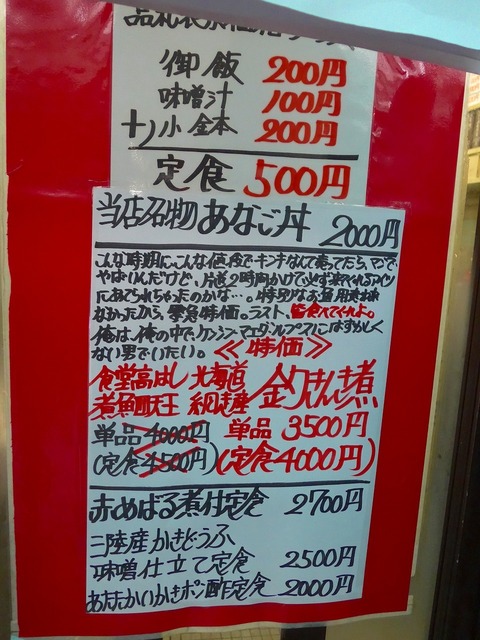 御飯 200円
味噌汁 100円
十り小鉢 200円
定食 500円
当店名物 あなご丼 2000円
こんな時期に、こんな値段でキンキなんて売ってたら、マジで
やばいんだけど、片道2時間かけて必ず来てくれるアイツ
にあてられちゃったのかな…。特別なお皿用意出来
なかったから、緊急特価。ラスト、皆食べてくれよ。
俺は、俺の中で、ケンシブ
ない男でいたい。≪特価≫
食堂高はし 北海道 釣りきんき煮
煮魚献王 網走産
単品 4000円 単品 3500円
(定食4500円) (定食4000円)
赤めばる煮付定食 2700円
三陸産かきどうふ
味噌仕立て定食 2500円
あたたかいかきポン酢定食 2000円